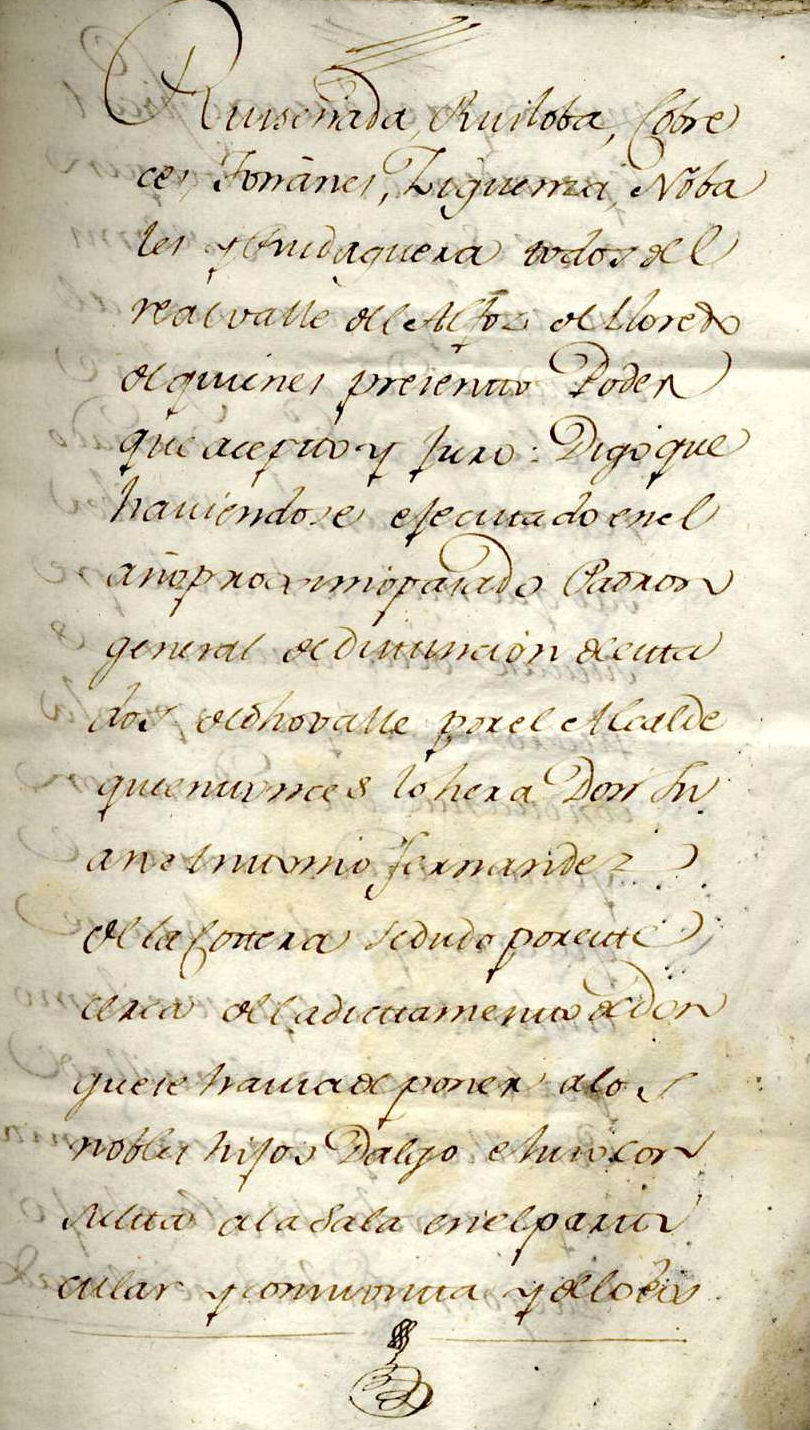 Ruiseñada, Ruiloba, Cobre
ces, Toñanes, Ziguenza, Noba
les y Rudaguera todos del
real valle del Alfoz de Lloredo
de quienes presento Poder
que acepto y juro: Digo que
haviendose ejecutado en el
año proximo pasado Padron
general de distincion de esta
dos de dho valle por el Alcalde
que entonces lo hera Don Ju
an Antonio Fernandez
de la Cottera se dudo por este
cerca del adictamento de Don
que se havia de poner a los
nobles hijos Dalgo e hizo con
sulta a la Sala en el parti
cular y con vista y de lo